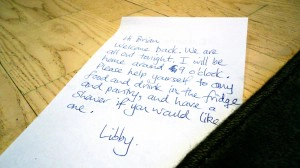 Hi Brian
Welcome back. We are
all out tonight. I will be
home around 9 o'clock.
Please help yourself to any
food and drink in the fridge
and pantry, and have a
shower if you would like
one.
Libby.